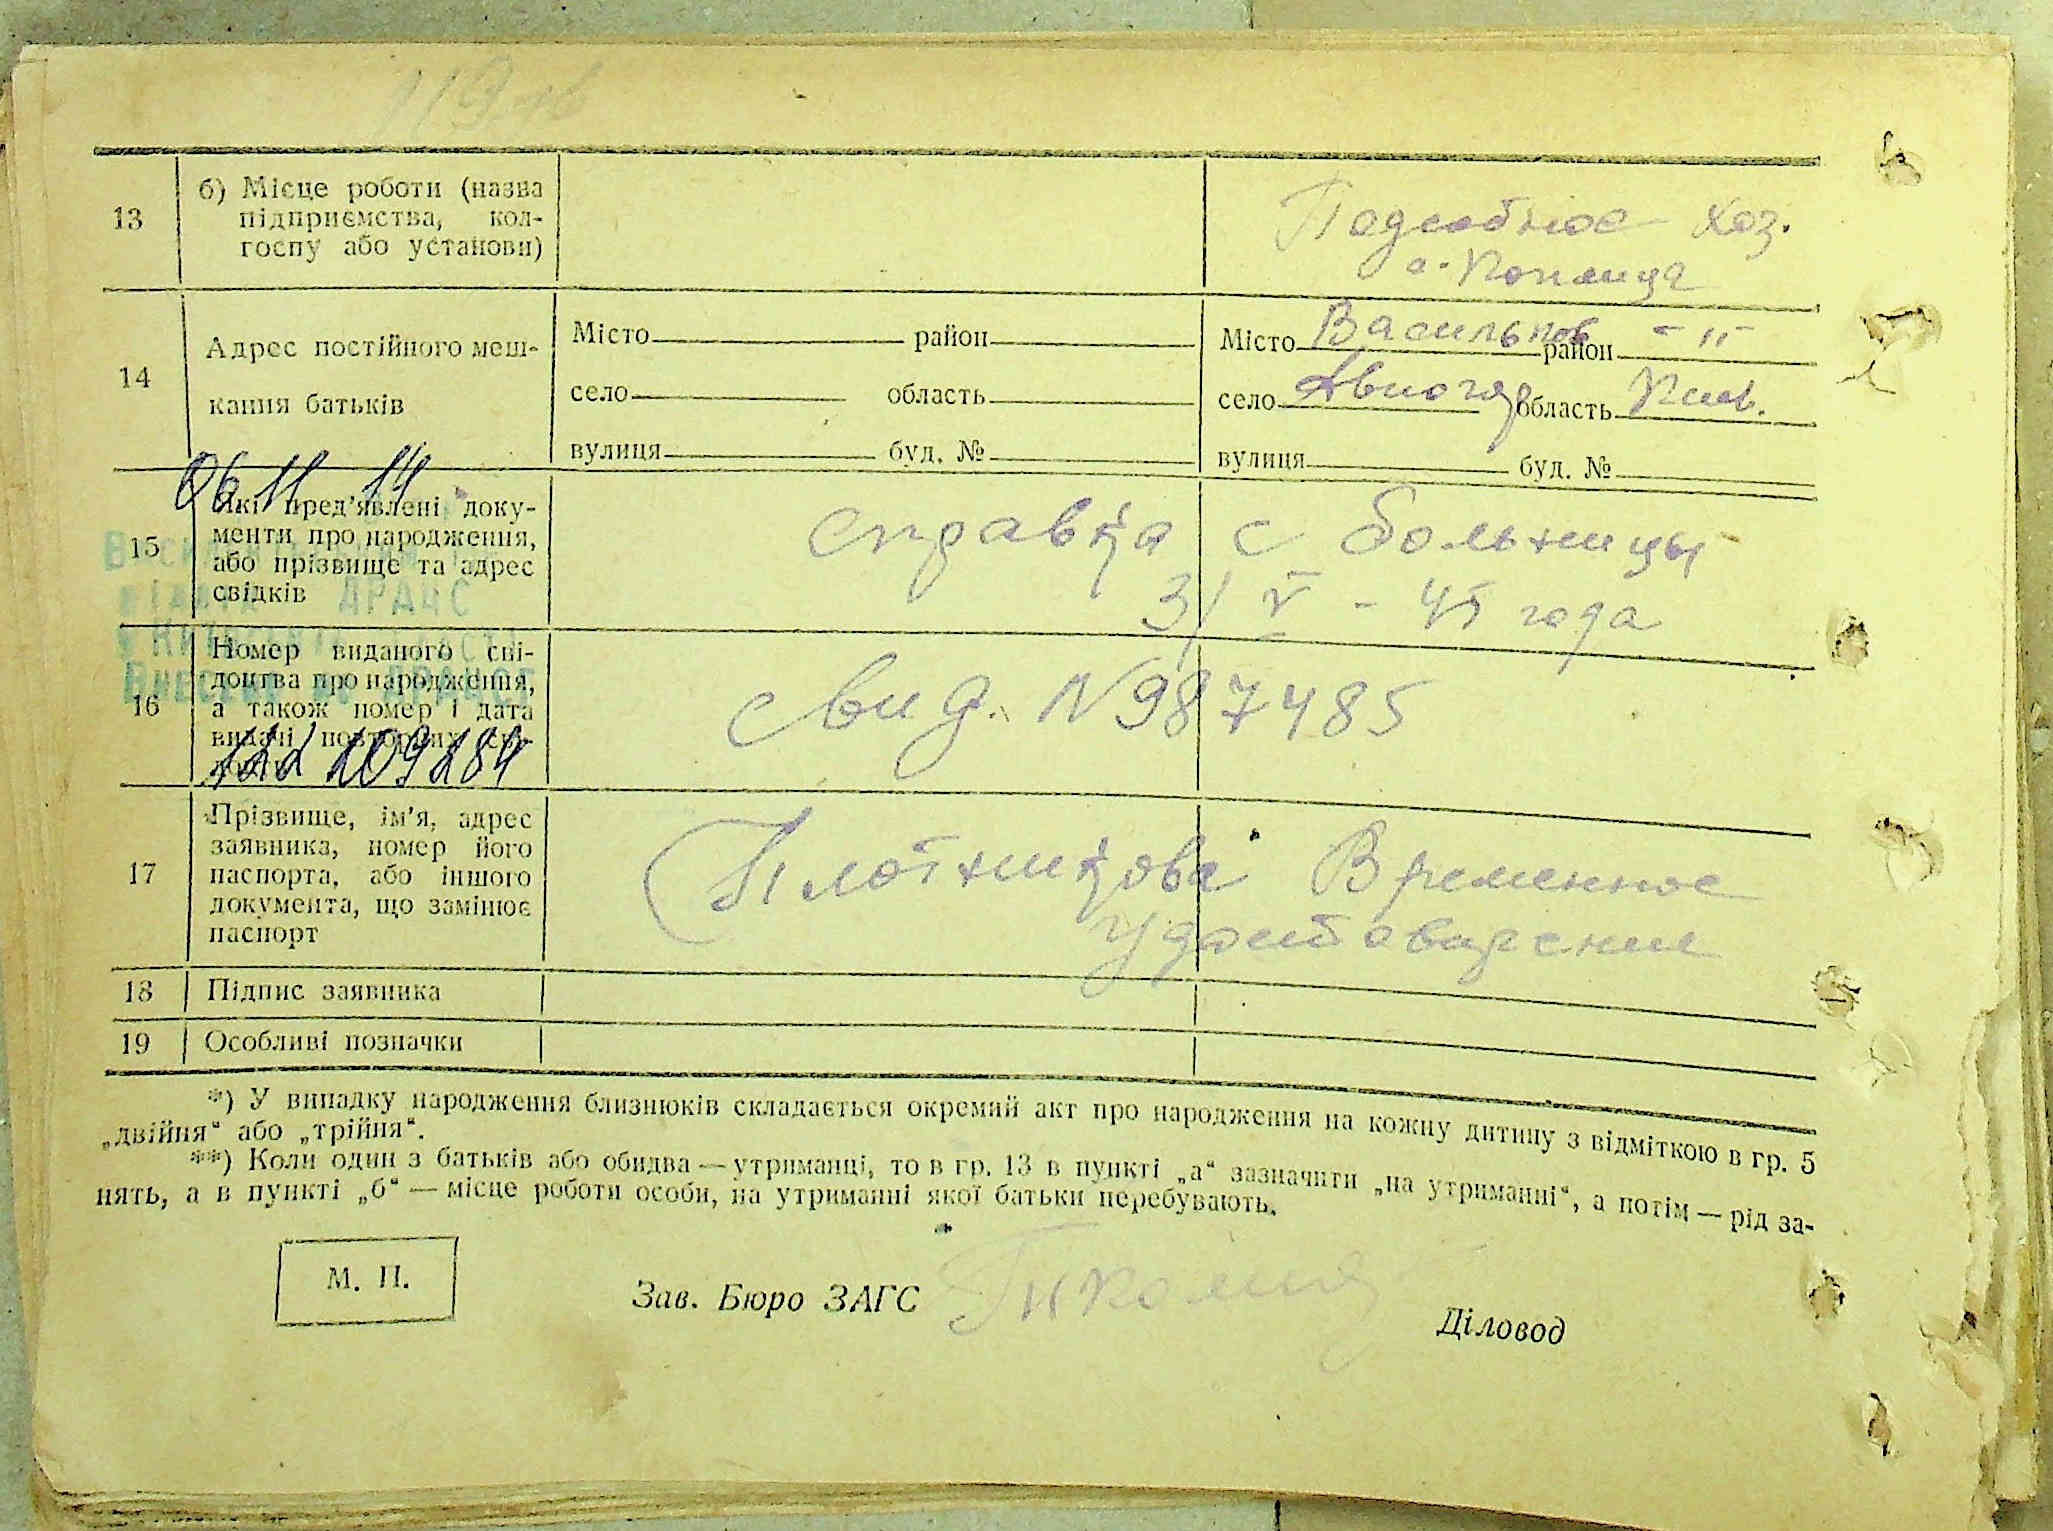 13
б) Місце роботи (назва
підприємства, кол-
госпу або установи)
Подсобное хоз.
14
Адрес постійного меш-
кання батьків
Місто район
село область
вулиця буд. №
Місто Васильков район - " -
село область Киев.
вулиця буд. №
15
Які пред'явлені доку-
менти про народження,
або прізвище та адрес
свідків
справка с больницы
31 V - 45 года
ДРАЦС
16
Номер виданого сві-
доцтва про народження,
а також номер і дата
видачі повторних сві-
свид. N 987485
17
Прізвище, ім'я, адрес
заявника, номер його
паспорта, або іншого
документа, що замінює
паспорт
Плотникова Временное
удостоверение
18
Підпис заявника
19
Особливі позначки
*) У випадку народження близнюків складається окремий акт про народження на кожну дитину з відміткою в гр. 5
„двійня“ або „трійня“.
**) Коли один з батьків або обидва — утриманці, то в гр. 13 в пункті „а“ зазначити „на утриманні“, а потім — рід за-
нять, а в пункті „б“ — місце роботи особи, на утриманні якої батьки перебувають.
М. П.
Зав. Бюро ЗАГС
Діловод